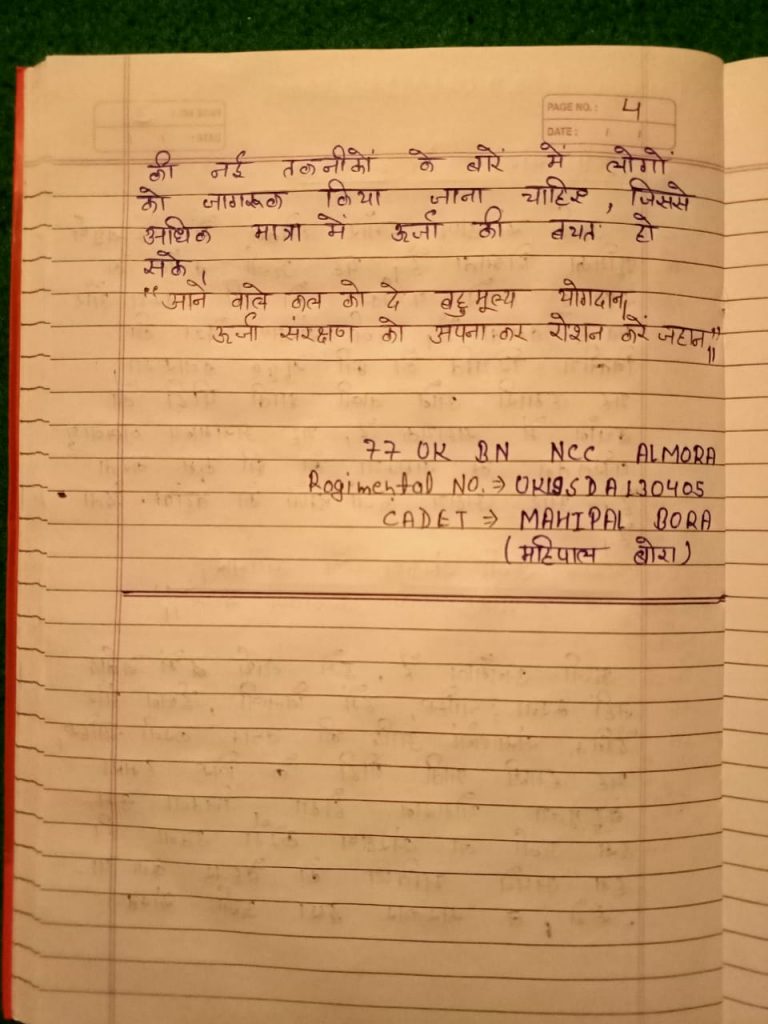 PAGE NO.: 4
DATE: / /
की नई तकनीकों के बारें में लोगों
को जागरूक किया जाना चाहिए, जिससे
अधिक मात्रा में ऊर्जा की बचत हो
सके।
"आने वाले कल को दे बहुमूल्य योगदान,
ऊर्जा संरक्षण को अपनाकर रोशन करें जहान"॥
77 UK BN NCC ALMORA
Regimental NO. ⇒ UK19SDA130405
CADET ⇒ MAHIPAL BORA
(महिपाल बोरा)